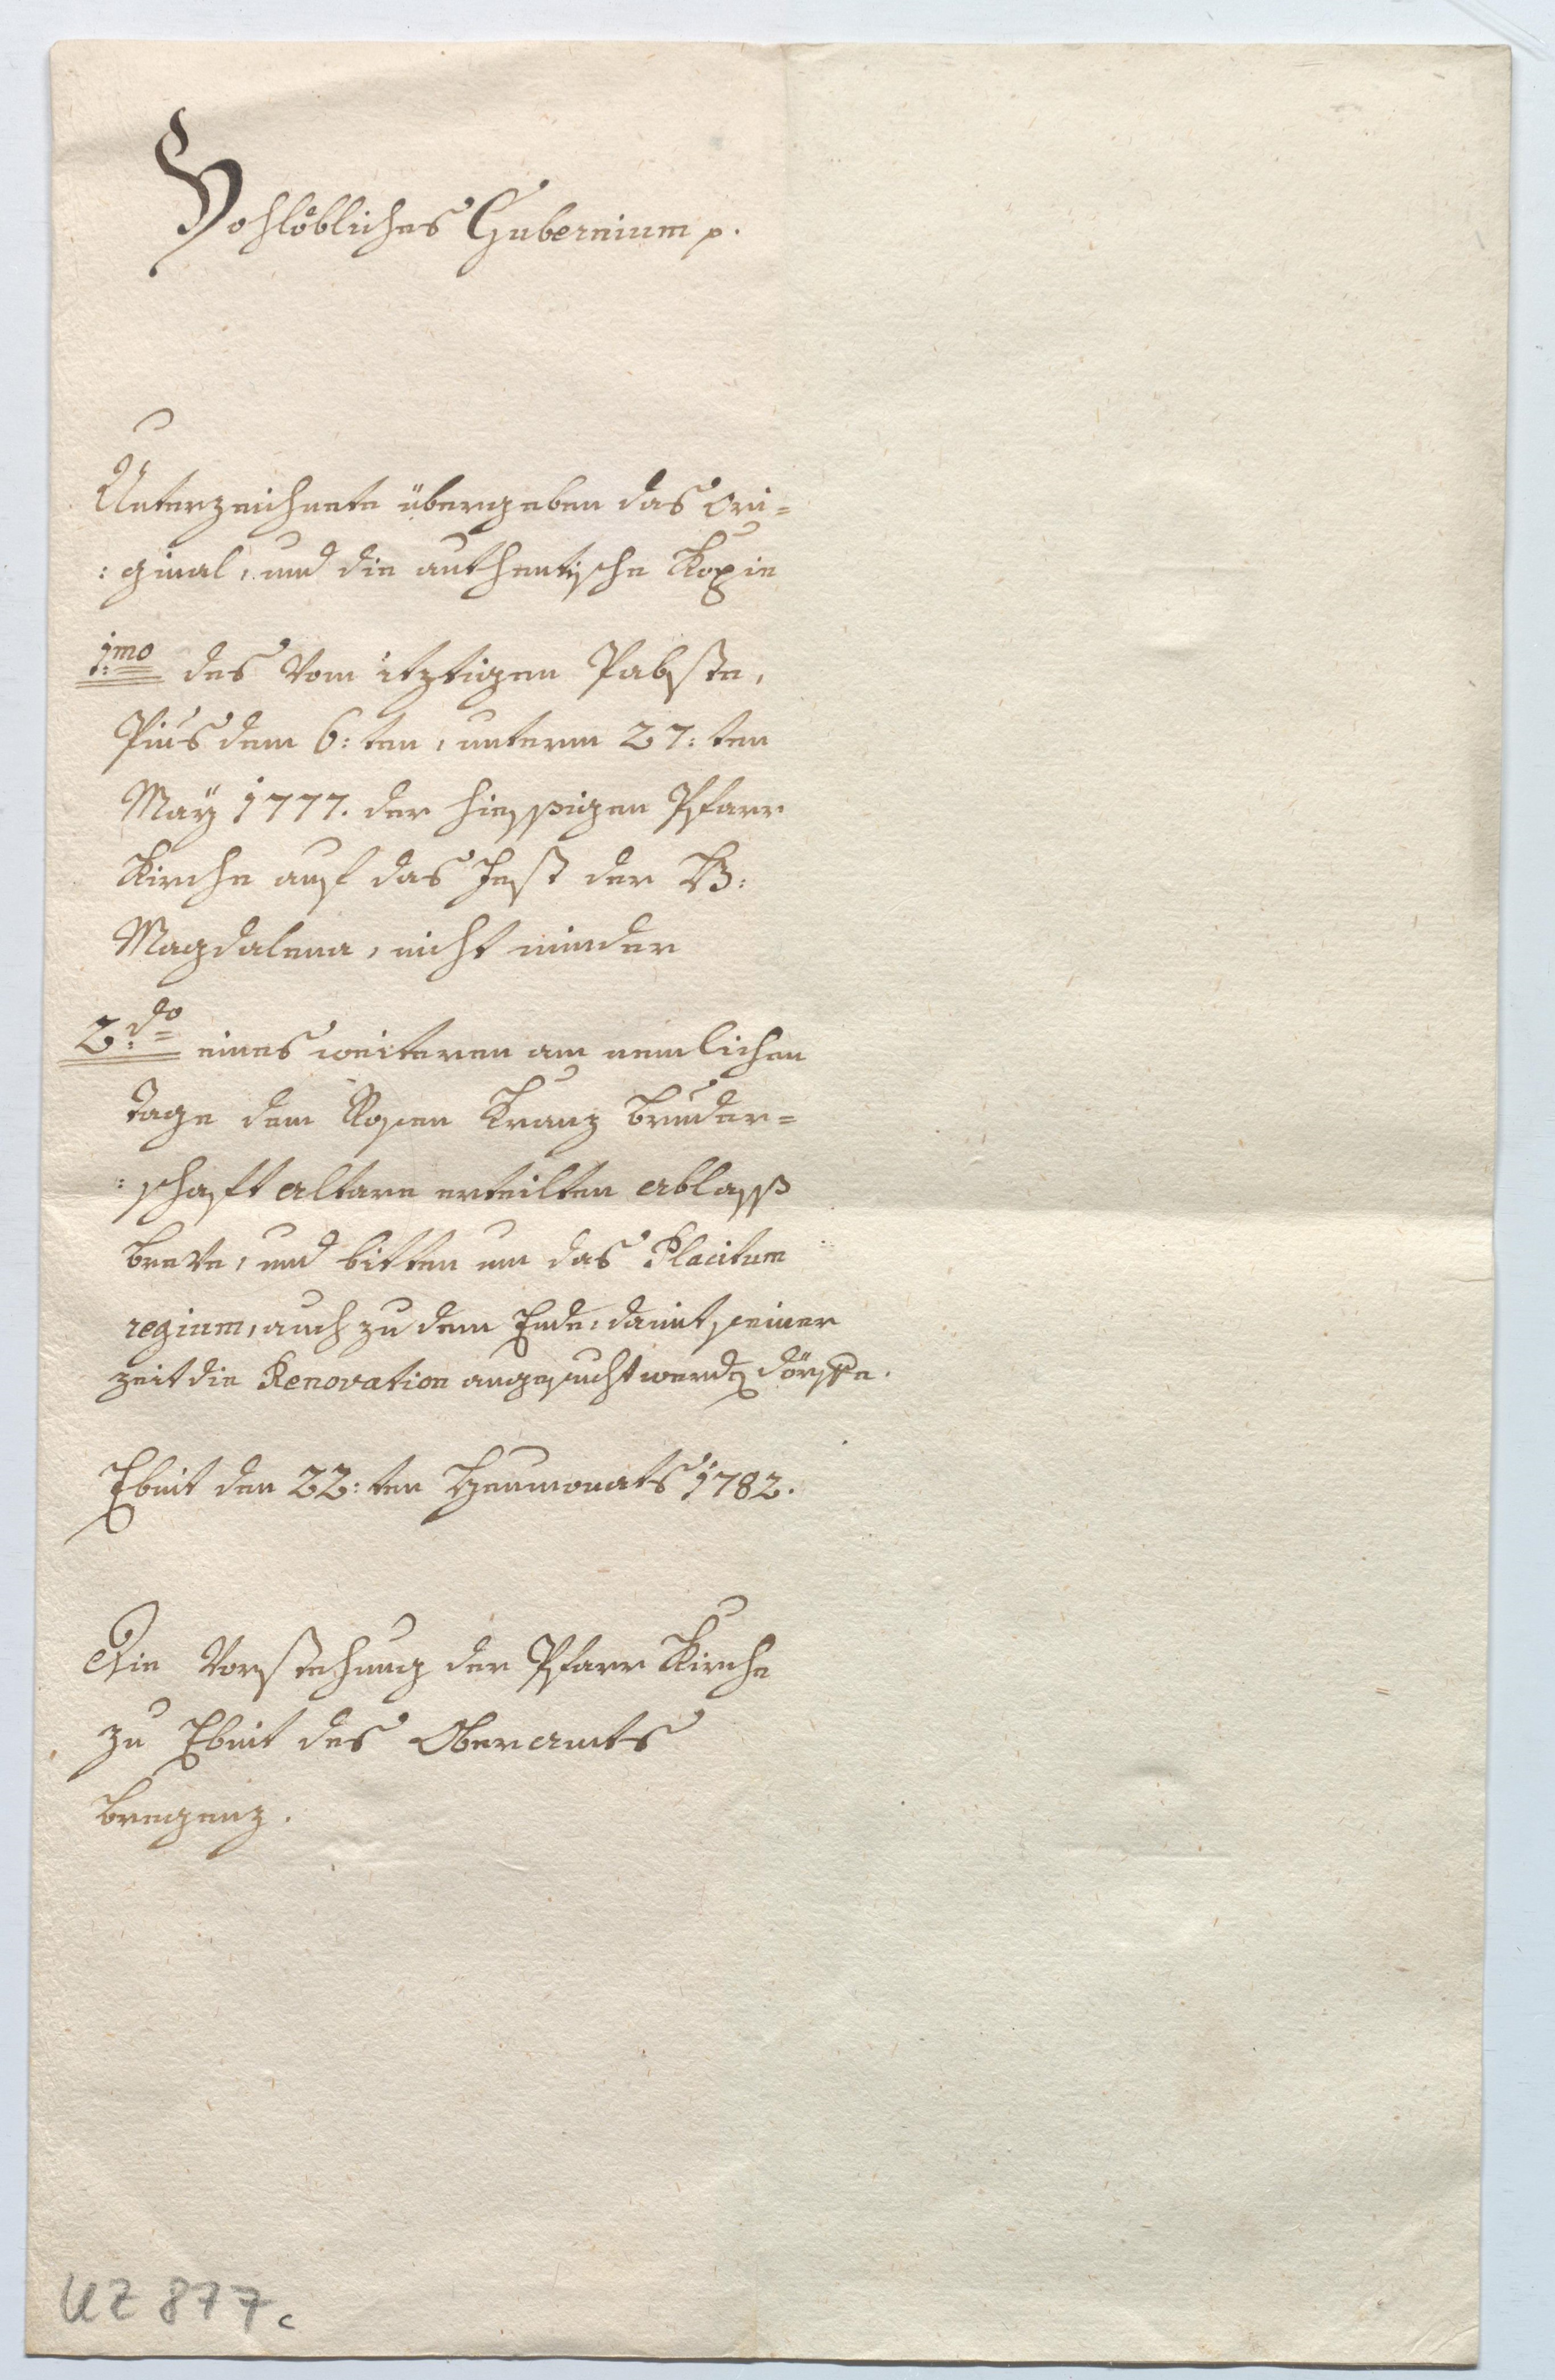 Hochlöbliches Gubernium p.
Unterzeichnete übergeben das Ori=
:ginal, und die authentische Kopie
1:mo des vom itztigen Pabste,
Pius dem 6:ten, unterm 27:ten
Maÿ 1777. der hiessigen Pfarr
Kirche auf das Fest der B:
Magdalena, nicht minder
2:do eines weiteren am nemlichen
Tage dem Rosen Kranz Bruder=
:schaft Altare erteilten Ablass
Breve, und bitten um das Placitum
regium, auch zu dem Ende, damit seiner
Zeit die Renovation angesucht werden dörffe.
Ebnit den 22:ten Heumonats 1782.
Die Vorstehung der Pfarr Kirche
zu Ebnit des Oberamts
Bregenz.
UZ 877c